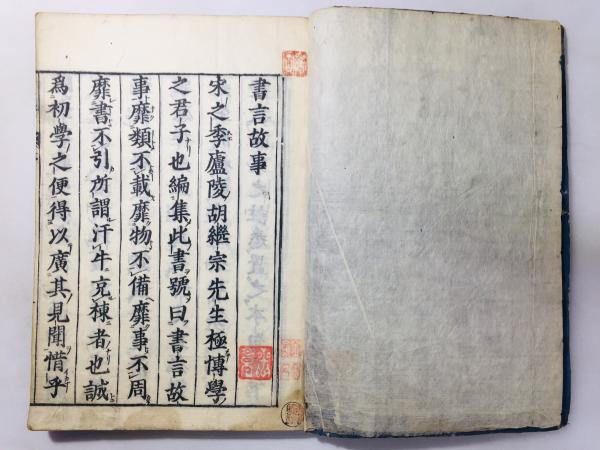 書言故事
宋之季廬陵胡繼宗先生極博學
之君子也編集此書號曰書言故
事靡類不載靡物不備靡事不周
靡書不引所謂汗牛充棟者也誠
爲初學之便得以廣其見聞惜乎